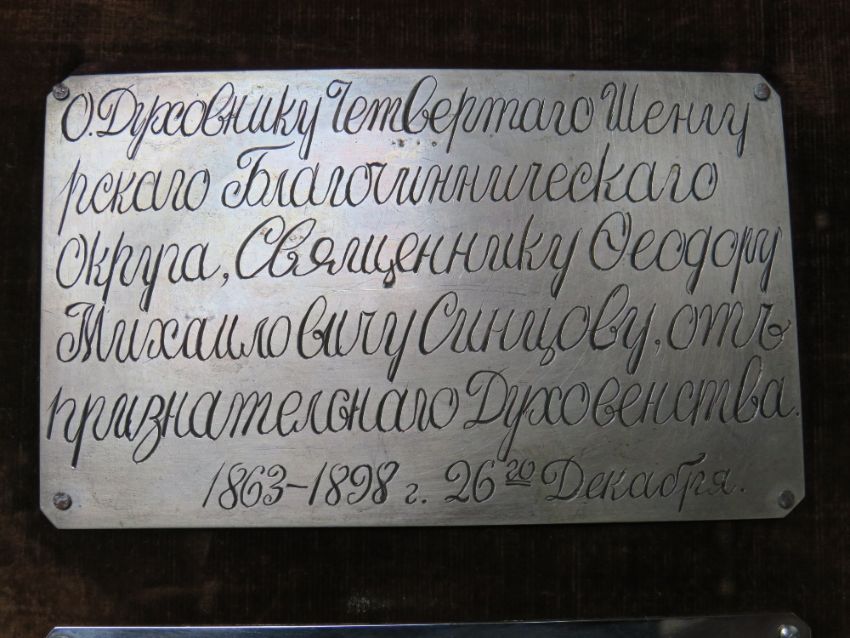 О. Духовнику Четвертаго Шенку
рскаго Благочинническаго
округа, Священнику Ѳеодору
Михаиловичу Синцову, отъ
признательнаго Духовенства.
1863-1898 г. 26го Декабря.